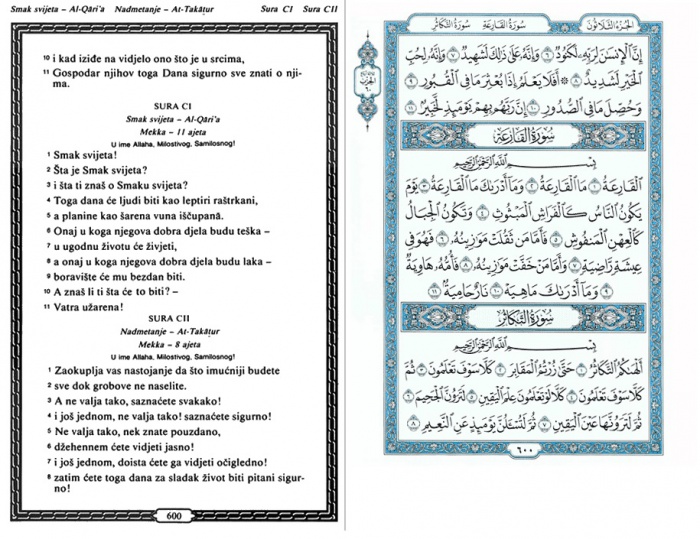 Smak svijeta – Al-Qāri'a Nadmetanje – At-Takāṯur Sura CI Sura CII
10 i kad iziđe na vidjelo ono što je u srcima,
11 Gospodar njihov toga Dana sigurno sve znati o nji-
ma.
SURA CI
Smak svijeta – Al-Qāri'a
Mekka – 11 ajeta
U ime Allaha, Milostivog, Samilosnog!
1 Smak svijeta!
2 Šta je Smak svijeta?
3 i šta ti znaš o Smaku svijeta?
4 Toga dana će ljudi biti kao leptiri raštrkani,
5 a planine kao šarena vuna iščupanā.
6 Onaj u koga njegova dobra djela budu teška –
7 u ugodnu životu će živjeti,
8 a onaj u koga njegova dobra djela budu laka –
9 boravište će mu bezdan biti.
10 A znaš li ti šta će to biti? –
11 Vatra užarena!
SURA CII
Nadmetanje – At-Takāṯur
Mekka – 8 ajeta
U ime Allaha, Milostivog, Samilosnog!
1 Zaokuplja vas nastojanje da što imućniji budete
2 sve dok grobove ne naselite.
3 A ne valja tako, saznaćete svakako!
4 i još jednom, ne valja tako! saznaćete sigurno!
5 Ne valja tako, nek znate pouzdano,
6 džehennem ćete vidjeti jasno!
7 i još jednom, doista ćete ga vidjeti očigledno!
8 zatim ćete toga dana za sladak život biti pitani sigur-
no!
600
الجزء الثلاثون سورة القارعة سورة التكاثر
إِنَّ ٱلْإِنسَٰنَ لِرَبِّهِۦ لَكَنُودٌ ٦ وَإِنَّهُۥ عَلَىٰ ذَٰلِكَ لَشَهِيدٌ ٧ وَإِنَّهُۥ لِحُبِّ
ٱلْخَيْرِ لَشَدِيدٌ ٨ ۞ أَفَلَا يَعْلَمُ إِذَا بُعْثِرَ مَا فِى ٱلْقُبُورِ ٩
وَحُصِّلَ مَا فِى ٱلصُّدُورِ ١٠ إِنَّ رَبَّهُم بِهِمْ يَوْمَئِذٍ لَّخَبِيرٌۢ ١١
سُورَةُ القَارِعَةِ
بِسْمِ ٱللَّهِ ٱلرَّحْمَٰنِ ٱلرَّحِيمِ
ٱلْقَارِعَةُ ١ مَا ٱلْقَارِعَةُ ٢ وَمَآ أَدْرَىٰكَ مَا ٱلْقَارِعَةُ ٣ يَوْمَ
يَكُونُ ٱلنَّاسُ كَٱلْفَرَاشِ ٱلْمَبْثُوثِ ٤ وَتَكُونُ ٱلْجِبَالُ
كَٱلْعِهْنِ ٱلْمَنفُوشِ ٥ فَأَمَّا مَن ثَقُلَتْ مَوَٰزِينُهُۥ ٦ فَهُوَ فِى
عِيشَةٍ رَّاضِيَةٍ ٧ وَأَمَّا مَنْ خَفَّتْ مَوَٰزِينُهُۥ ٨ فَأُمُّهُۥ هَاوِيَةٌ
٩ وَمَآ أَدْرَىٰكَ مَا هِيَهْ ١٠ نَارٌ حَامِيَةٌۢ ١١
سُورَةُ التَّكَاثُرِ
بِسْمِ ٱللَّهِ ٱلرَّحْمَٰنِ ٱلرَّحِيمِ
أَلْهَىٰكُمُ ٱلتَّكَاثُرُ ١ حَتَّىٰ زُرْتُمُ ٱلْمَقَابِرَ ٢ كَلَّا سَوْفَ تَعْلَمُونَ ٣ ثُمَّ
كَلَّا سَوْفَ تَعْلَمُونَ ٤ كَلَّا لَوْ تَعْلَمُونَ عِلْمَ ٱلْيَقِينِ ٥ لَتَرَوُنَّ ٱلْجَحِيمَ ٦
ثُمَّ لَتَرَوُنَّهَا عَيْنَ ٱلْيَقِينِ ٧ ثُمَّ لَتُسْـَٔلُنَّ يَوْمَئِذٍ عَنِ ٱلنَّعِيمِ ٨
٦٠٠